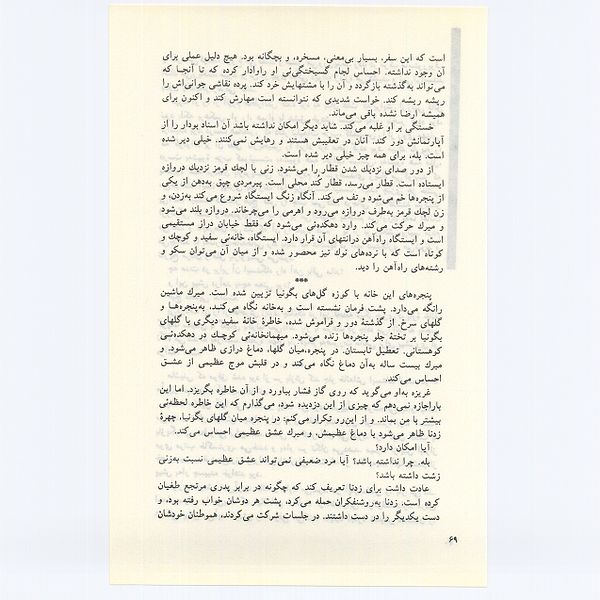 است که این سفر، بسیار بی‌معنی، مسخره، و بچگانه بود. هیچ دلیل عملی برای
آن وجود نداشته. احساس لجام گسیختگی‌ئی او راوادار کرده که تا آنجا که
می‌تواند به‌گذشته بازگردد و آن را با مشتهایش خرد کند. پرده نقاشی جوانی‌اش را
ریشه ریشه کند. خواست شدیدی که نتوانسته است مهارش کند و اکنون برای
همیشه ارضا نشده باقی می‌ماند.
خستگی بر او غلبه می‌کند. شاید دیگر امکان نداشته باشد آن اسناد بودار را از
آپارتمانش دور کند. آنان در تعقیبش هستند و رهایش نمی‌کنند. خیلی دیر شده
است. بله، برای همه چیز خیلی دیر شده است.
از دور صدای نزدیك شدن قطار را می‌شنود. زنی با لچك قرمز نزدیك دروازه
ایستاده است. قطار می‌رسد، قطار کند محلی است. پیرمردی چپق به‌دهن از یکی
از پنجره‌ها خم می‌شود و تف می‌کند. آنگاه زنگ ایستگاه شروع می‌کند به‌زدن، و
زن لچك قرمز به‌طرف دروازه می‌رود و اهرمی را می‌چرخاند. دروازه بلند می‌شود
و میرك حرکت می‌کند. وارد دهکده‌ئی می‌شود که فقط خیابان دراز مستقیمی
است و ایستگاه راه‌آهن درانتهای آن قرار دارد. ایستگاه، خانه‌ئی سفید و کوچك و
کوتاه است که با نرده‌های نوك تیز محصور شده و از میان آن می‌توان سکو و
رشته‌های راه‌آهن را دید.
***
پنجره‌های این خانه با کوزه گل‌های بگونیا تزیین شده است. میرك ماشین
رانگه می‌دارد. پشت فرمان نشسته است و به‌خانه نگاه می‌کند، به‌پنجره‌ها و
گلهای سرخ. از گذشتهٔ دور و فراموش شده، خاطرهٔ خانهٔ سفید دیگری با گلهای
بگونیا بر تختهٔ جلو پنجره‌ها زنده می‌شود. میهمانخانه‌ئی کوچك در دهکده‌ئی
کوهستانی. تعطیل تابستان. در پنجره،میان گلها، دماغ درازی ظاهر می‌شود. و
میرك بیست ساله به‌آن دماغ نگاه می‌کند و در قلبش موج عظیمی از عشق
احساس می‌کند.
غریزه به‌او می‌گوید که روی گاز فشار بیاورد و از آن خاطره بگریزد. اما این
باراجازه نمی‌دهم که چیزی از این دزدیده شود، می‌گذارم که این خاطره لحظه‌ئی
بیشتر با من بماند. و از این‌رو تکرار می‌کنم: در پنجره میان گلهای بگونیا، چهرهٔ
زدنا ظاهر می‌شود با دماغ عظیمش، و میرك عشق عظیمی احساس می‌کند.
آیا امکان دارد؟
بله. چرا نداشته باشد؟ آیا مرد ضعیفی نمی‌تواند عشق عظیمی نسبت به‌زنی
زشت داشته باشد؟
عادت داشت برای زدنا تعریف کند که چگونه در برابر پدری مرتجع طغیان
کرده است. زدنا به‌روشنفکران حمله می‌کرد، پشت هر دوشان خواب رفته بود، و
دست یکدیگر را در دست داشتند. در جلسات شرکت می‌کردند، هموطنان خودشان
۶۹